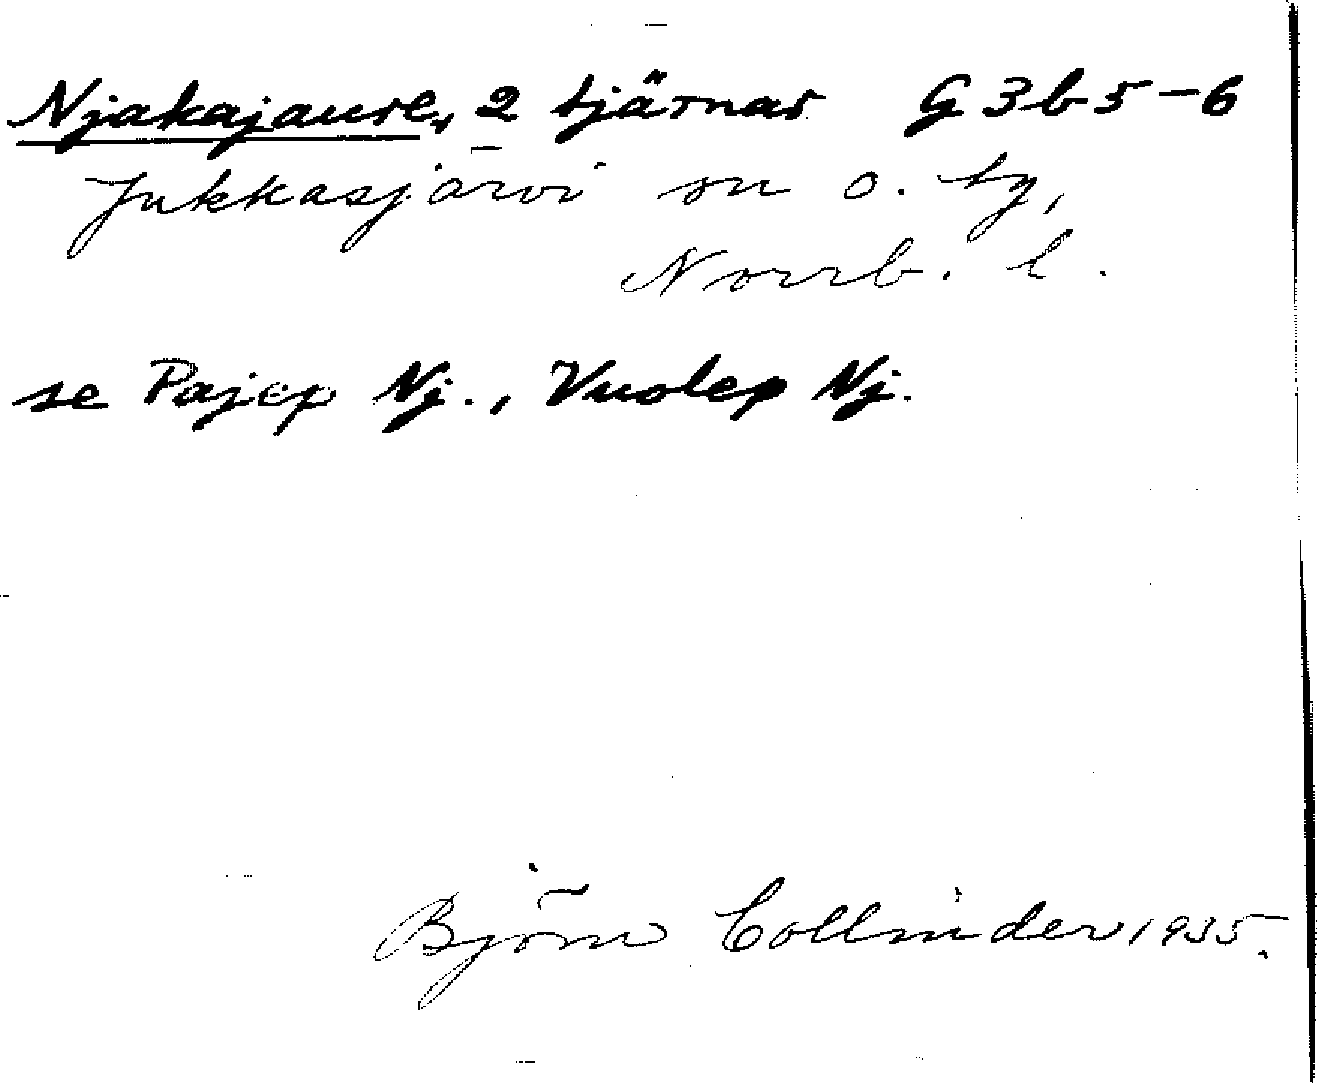 Njakajaure, 2 tjärnar G 3b5-6
Jukkasjärvi sn o. tg,
Norrb. l.
se Pajep Nj., Vuolep Nj.
Björn Collinder 1935.